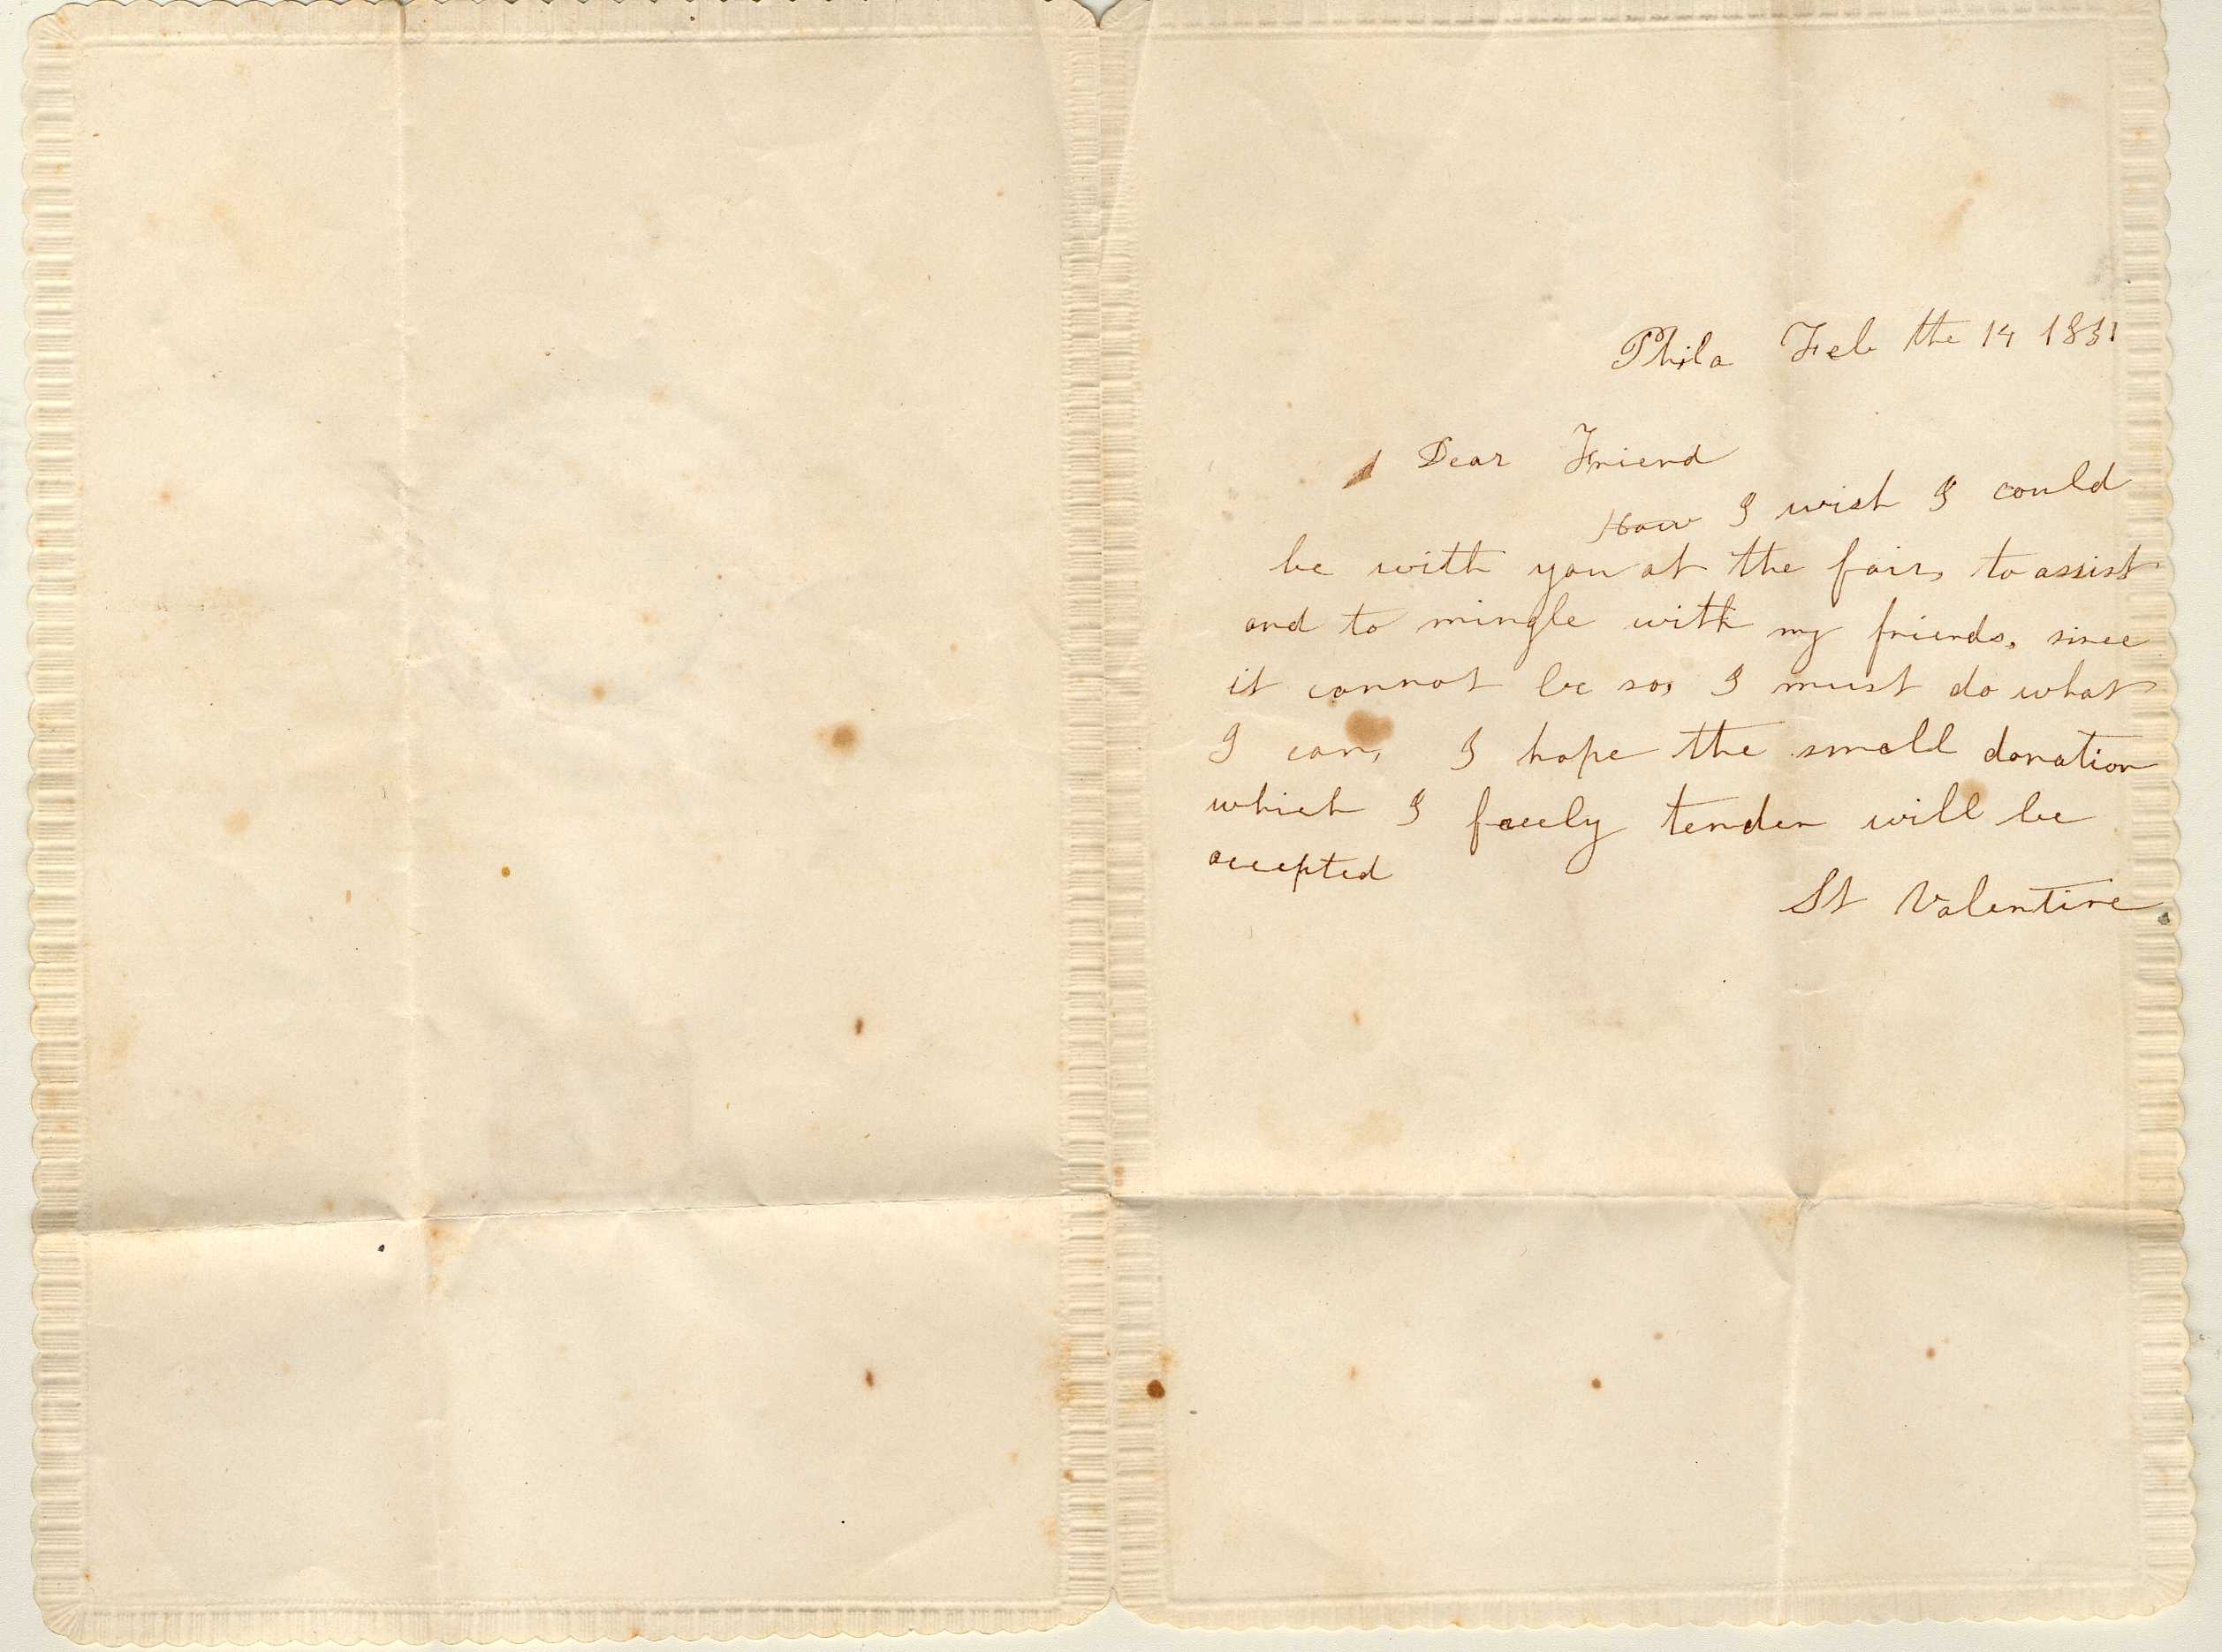 Phila Feb the 14 1851
Dear Friend
How I wish I could
be with you at the fair, to assist
and to mingle with my friends, since
it cannot be so, I must do what
I can, I hope the small donation
which I freely tender will be
accepted
St Valentine